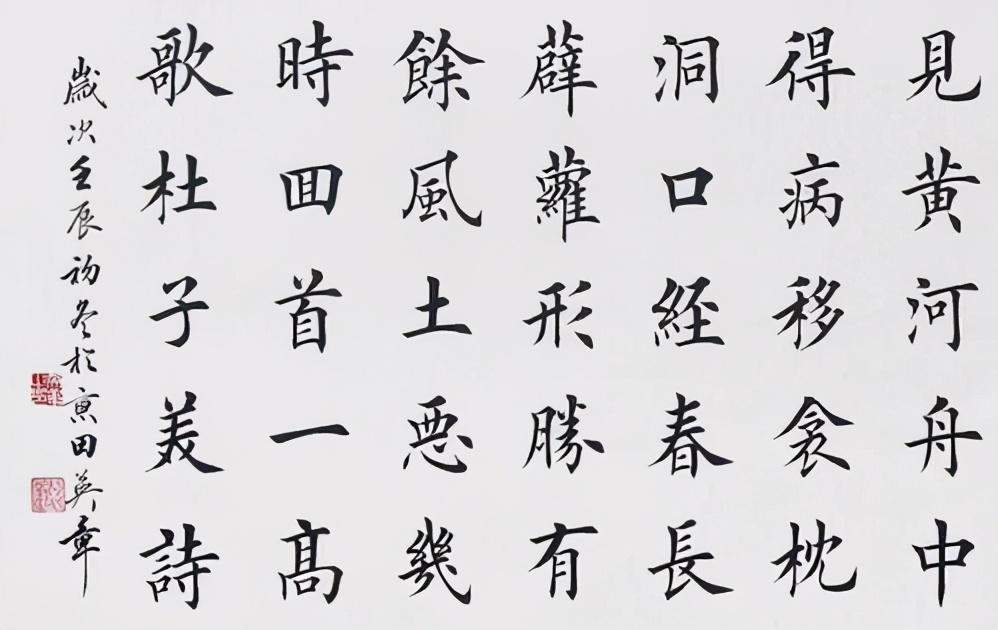 見黄河舟中
得病移衾枕
洞口經春長
薜蘿形勝有
餘風土惡幾
時回首一高
歌杜子美詩
歲次壬辰初冬於京田英章